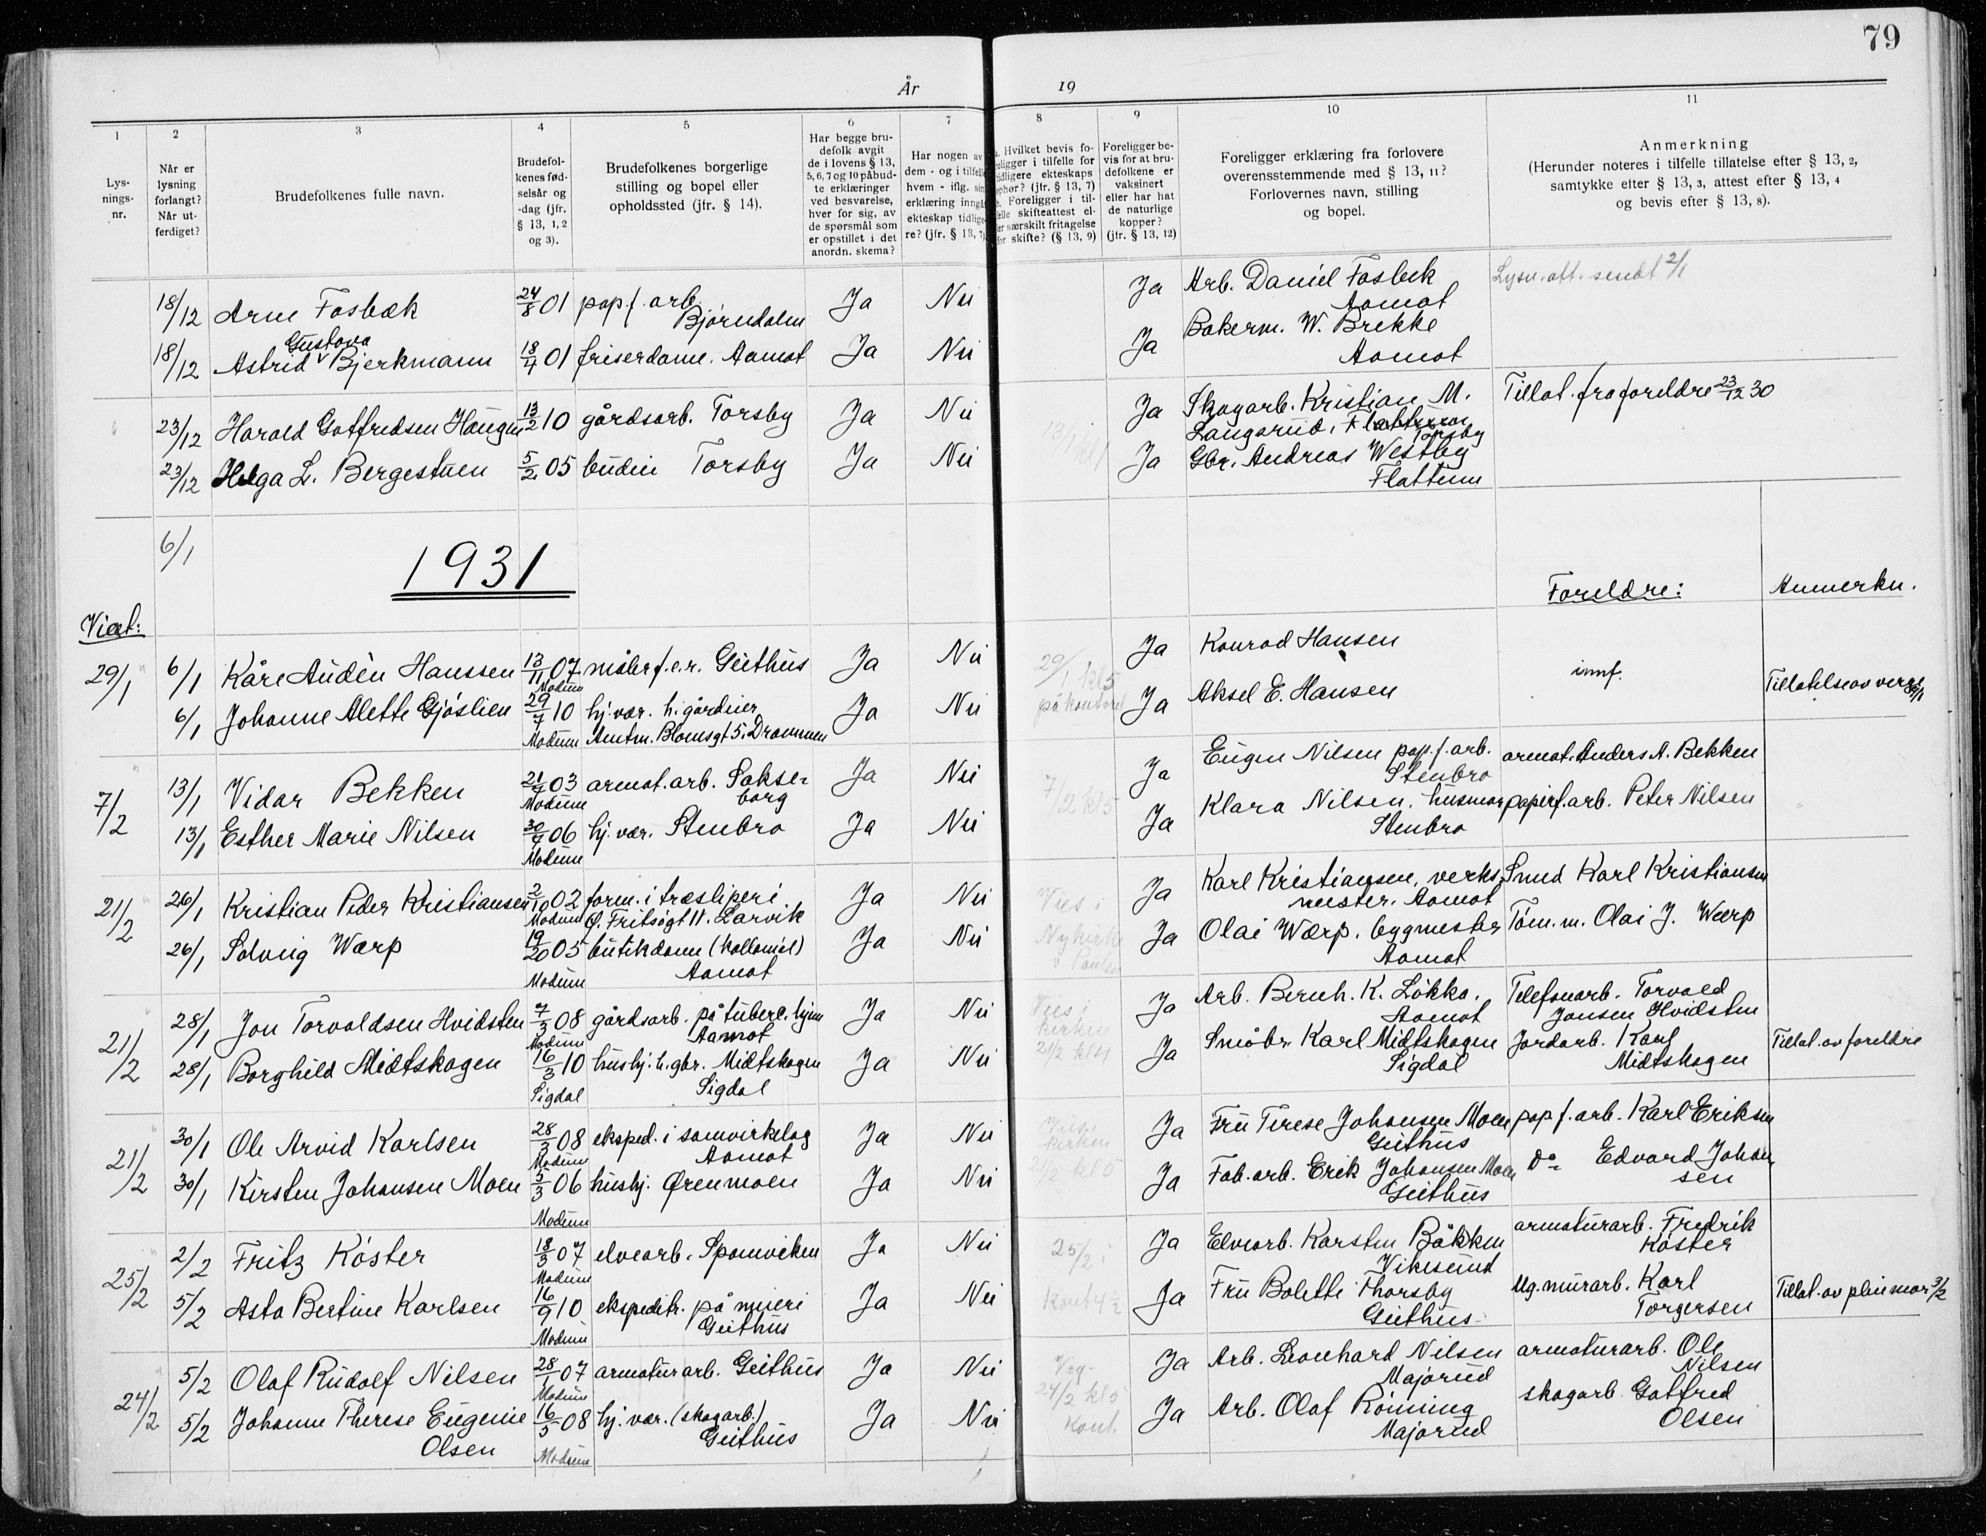 79
År
19
1
2
3
4
5
6
7
8
9
10
11
Lys-
nings-
nr.
Når er
lysning
forlangt?
Når ut-
ferdiget?
Brudefolkenes fulle navn.
Brudefol-
kenes fød-
selsår og
-dag (jfr.
§ 13, 1, 2
og 3).
Brudefolkenes borgerlige
stilling og bopel eller
opholdssted (jfr. § 14).
Har begge bru-
defolk avgit
de i lovens § 13,
5, 6, 7 og 10 påbud-
te erklæringer
ved besvarelse,
hver for sig, av
de spørsmål som
er opstillet i det
anordn. skema?
Har nogen av
dem - og i tilfelle
hvem - iflg. sin
erklæring inngåt
ekteskap tidlige-
re? (jfr. § 13, 7)
Hvilket bevis fo-
religger i tilfelle for
tidligere ekteskaps
ophør? (jfr. § 13, 7)
Foreligger i til-
felle skifteattest el-
ler særskilt fritagelse
for skifte? (§ 13, 9)
Foreligger be-
vis for at bru-
defolkene er
vaksinert
eller har hat
de naturlige
kopper?
(jfr. § 13, 12)
Foreligger erklæring fra forlovere
overensstemmende med § 13, 11?
Forlovernes navn, stilling
og bopel.
Anmerkning
(Herunder noteres i tilfelle tillatelse efter § 13, 2,
samtykke efter § 13, 3, attest efter § 13, 4
og bevis efter § 13, 8).
18/12 Arne Fosbæk 24/8 01 pap.f. arb. Bjørndalen Ja Nei Ja Arb. Daniel Fosbek Aamot Lysn. att. sendt 2/1
18/12 Astrid Gustava Bjerkmann 18/4 01 friserdame. Aamot Ja Nei Ja Bakerm. W. Brekke Aamot
23/12 Harald Gotfredsen Haugen 13/2 10 gårdsarb. Torsby Ja Nei Ja Skogarb. Kristian M. Langerud, Torsby Tillat. fra foreldre 23/12 30
23/12 Helga L. Bergestuen 5/2 05 budeie Torsby Ja Nei Ja Gbr. Andreas Westby Flattum
6/1
1931
Viet:
Foreldre:
Anmerkn.
29/1 6/1 Kåre Audèn Hanssen 13/11 07 Modum møbelf.e.r. Geithus Ja Nei 29/1 kl 5 på kontoret Ja Konrad Hansen innf.
6/1 Johanne Alette Gjøslien 29/7 10 Modum hj. vær. h. gårdeier Amtm. Blomsgt 5. Drammen Ja Nei Ja Aksel E. Hansen Tillatelse av verge
7/2 13/1 Vidar Bekken 03 Modum armat. arb. Sakse-
borg Ja Nei 7/2 kl 5 Ja Eugen Nilsen pap.f. arb. Stenbro armat. Anders A. Bekken
13/1 Esther Marie Nilsen 06 Modum hj. vær. Stenbro Ja Nei Ja Klara Nilsen. husmor Stenbro papirf. arb. Peter Nilsen
21/2 26/1 Kristian Peder Kristiansen 2/10 02 Modum form. i træsliperi Ø. Fritsøgt 11. Larvik Ja Nei Vies i Nykirke v Paulsen Ja Karl Kristiansen, verks-
mester. Aamot Smed Karl Kristiansen
26/1 Solveig Wærp 05 Modum butikdame (kolonial) Aamot Ja Nei Ja Olai Wærp. bygmester Aamot Tøm.m. Olai J. Wærp
21/2 28/1 Jon Torvaldsen Hvidsten 7/3 08 Modum gårdsarb. på tuberc. hjem Aamot Ja Nei Vies i kirken 21/2 kl 4 Ja Arb. Bernh. K. Løkka. Aamot Telefonarb. Torvald Jonsen Hvidsten
28/1 Borghild Midtskogen 16/3 10 Sigdal hushj. h. gbr. Midtskogen Sigdal Ja Nei Ja Småbr. Karl Midtskogen Sigdal Jordarb. Karl Midtskogen Tillat. av foreldre
21/2 30/1 Ole Arvid Karlsen 28/3 08 Modum eksped. i samvirkelag Aamot Ja Nei Vies i kirken 21/2 kl 5 Ja Fru Terese Johansen Moen Geithus pap f. arb. Karl Eriksen
30/1 Kirsten Johansen Moen 5/3 06 Modum hushj. Ørenmoen Ja Nei Ja Fab. arb. Erik Johansen Moen Geithus Do Edvard Johan-
sen
25/2 2/2 Fritz Köster 18/3 07 Modum elvearb. Spomviken Ja Nei 25/2 i Kont 4 1/2 Ja Elvearb. Karsten Bäkken Vikesund armaturarb. Fredrik Köster
5/2 Asta Bertine Karlsen 16/9 10 Modum ekspeditr. på mieri Geithus Ja Nei Ja Fru Bolette Thorsby Geithus. Ug. murarb. Karl Torgersen Tillat. av pleiemor 3/2
24/2 5/2 Olaf Rudolf Nilsen 28/1 07 Modum armaturarb. Geithus Ja Nei 24/2 kl 5 Kont. Ja Arb. Leonhard Nilsen Majorud armaturarb. Ole Nilsen
5/2 Johanne Therese Eugenie Olsen 16/5 08 Modum hj. vær. (skogarb.) Geithus Ja Nei Ja Arb. Olaf Rönning Majorud skogarb. Gotfred Olsen